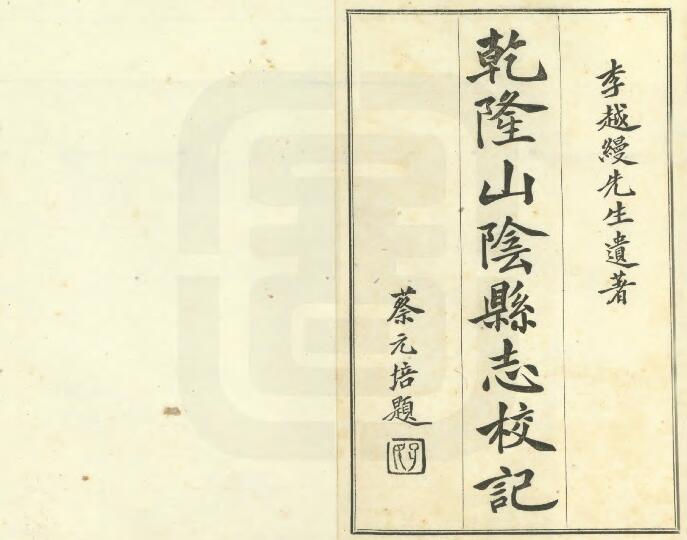 李越縵先生遺著
乾隆山陰縣志校記
蔡元培題